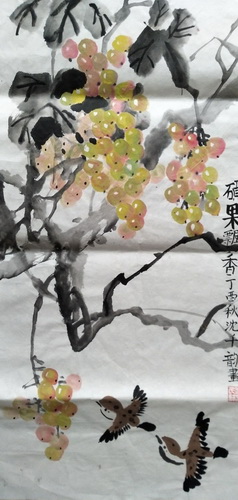 硕果飘香丁酉秋沈千韵画